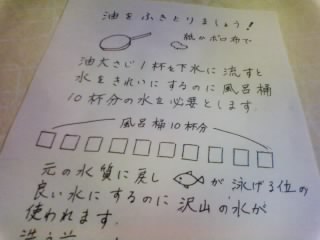 油をふきとりましょう!
紙かボロ布で
油大さじ1杯を下水に流すと
水をきれいにするのに風呂桶
10杯分の水を必要とします.
風呂桶10杯分
元の水質に戻し が泳げる位の
良い水にするのに沢山の水が
使われます.
洗う前